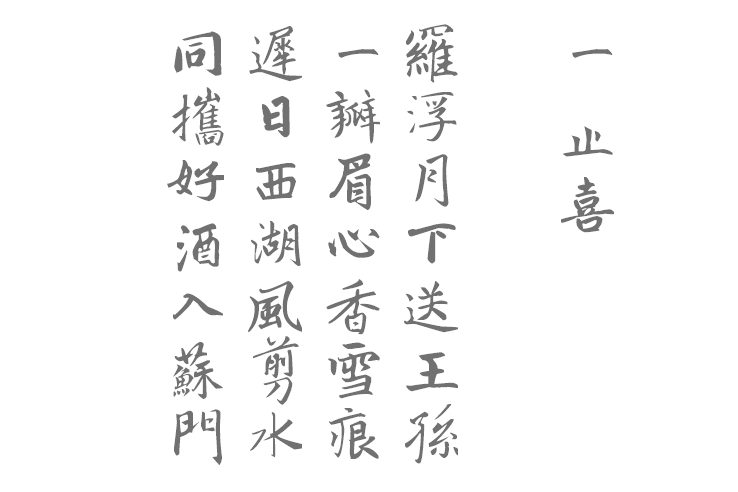 一 止喜
羅浮月下送王孫
一瓣眉心香雪痕
遲日西湖風剪水
同攜好酒入蘇門